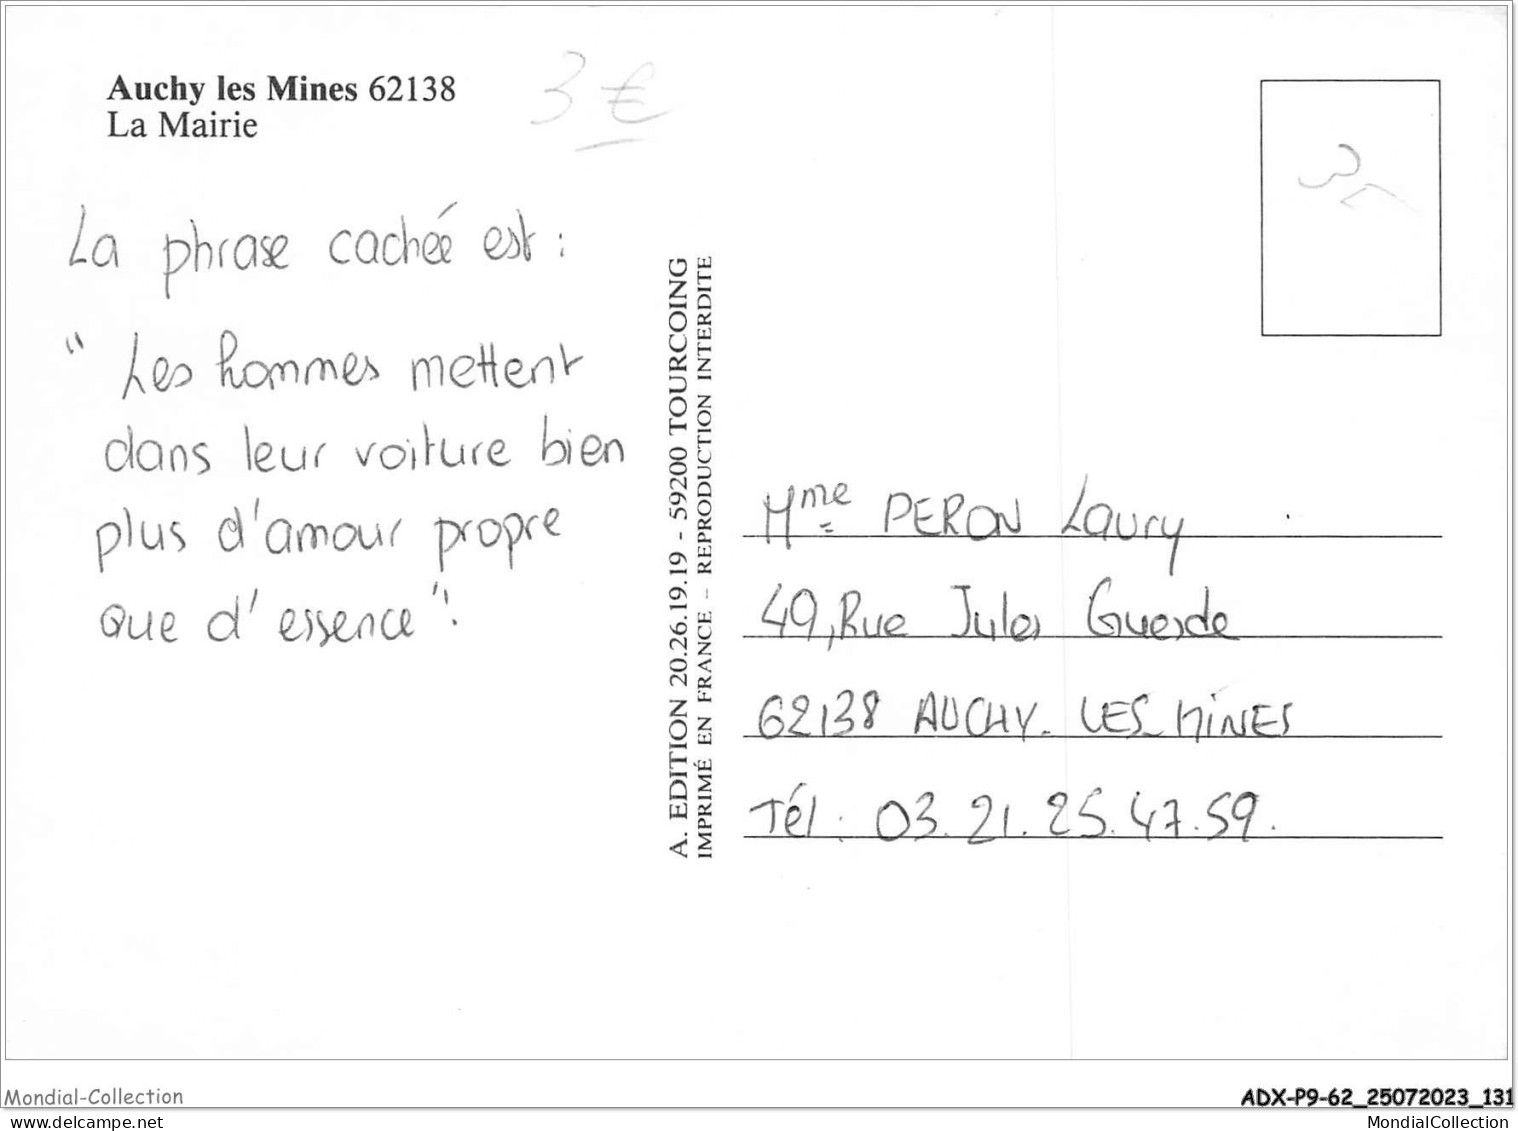 Auchy les Mines 62138
La Mairie
3 €
La phrase cachée est :
“ Les hommes mettent
dans leur voiture bien
plus d'amour propre
que d'essence ".
A. EDITION 20.26.19.19 - 59200 TOURCOING
IMPRIMÉ EN FRANCE – REPRODUCTION INTERDITE
Mme PERON Laury
49, Rue Jules Guesde
62138 AUCHY-LES-MINES
Tél : 03.21.25.47.59.
Mondial-Collection
ADX-P9-62_25072023_131
MondialCollection.net
MondialCollection